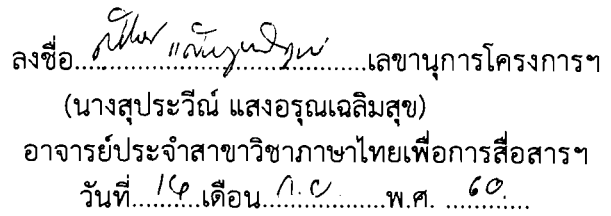 ลงชื่อ..............................เลขานุการโครงการฯ
(นางสุประวีณ์ แสงอรุณเฉลิมสุข)
อาจารย์ประจำสาขาวิชาภาษาไทยเพื่อการสื่อสารฯ
วันที่....14....เดือน....ก.ย.............พ.ศ. ....60........